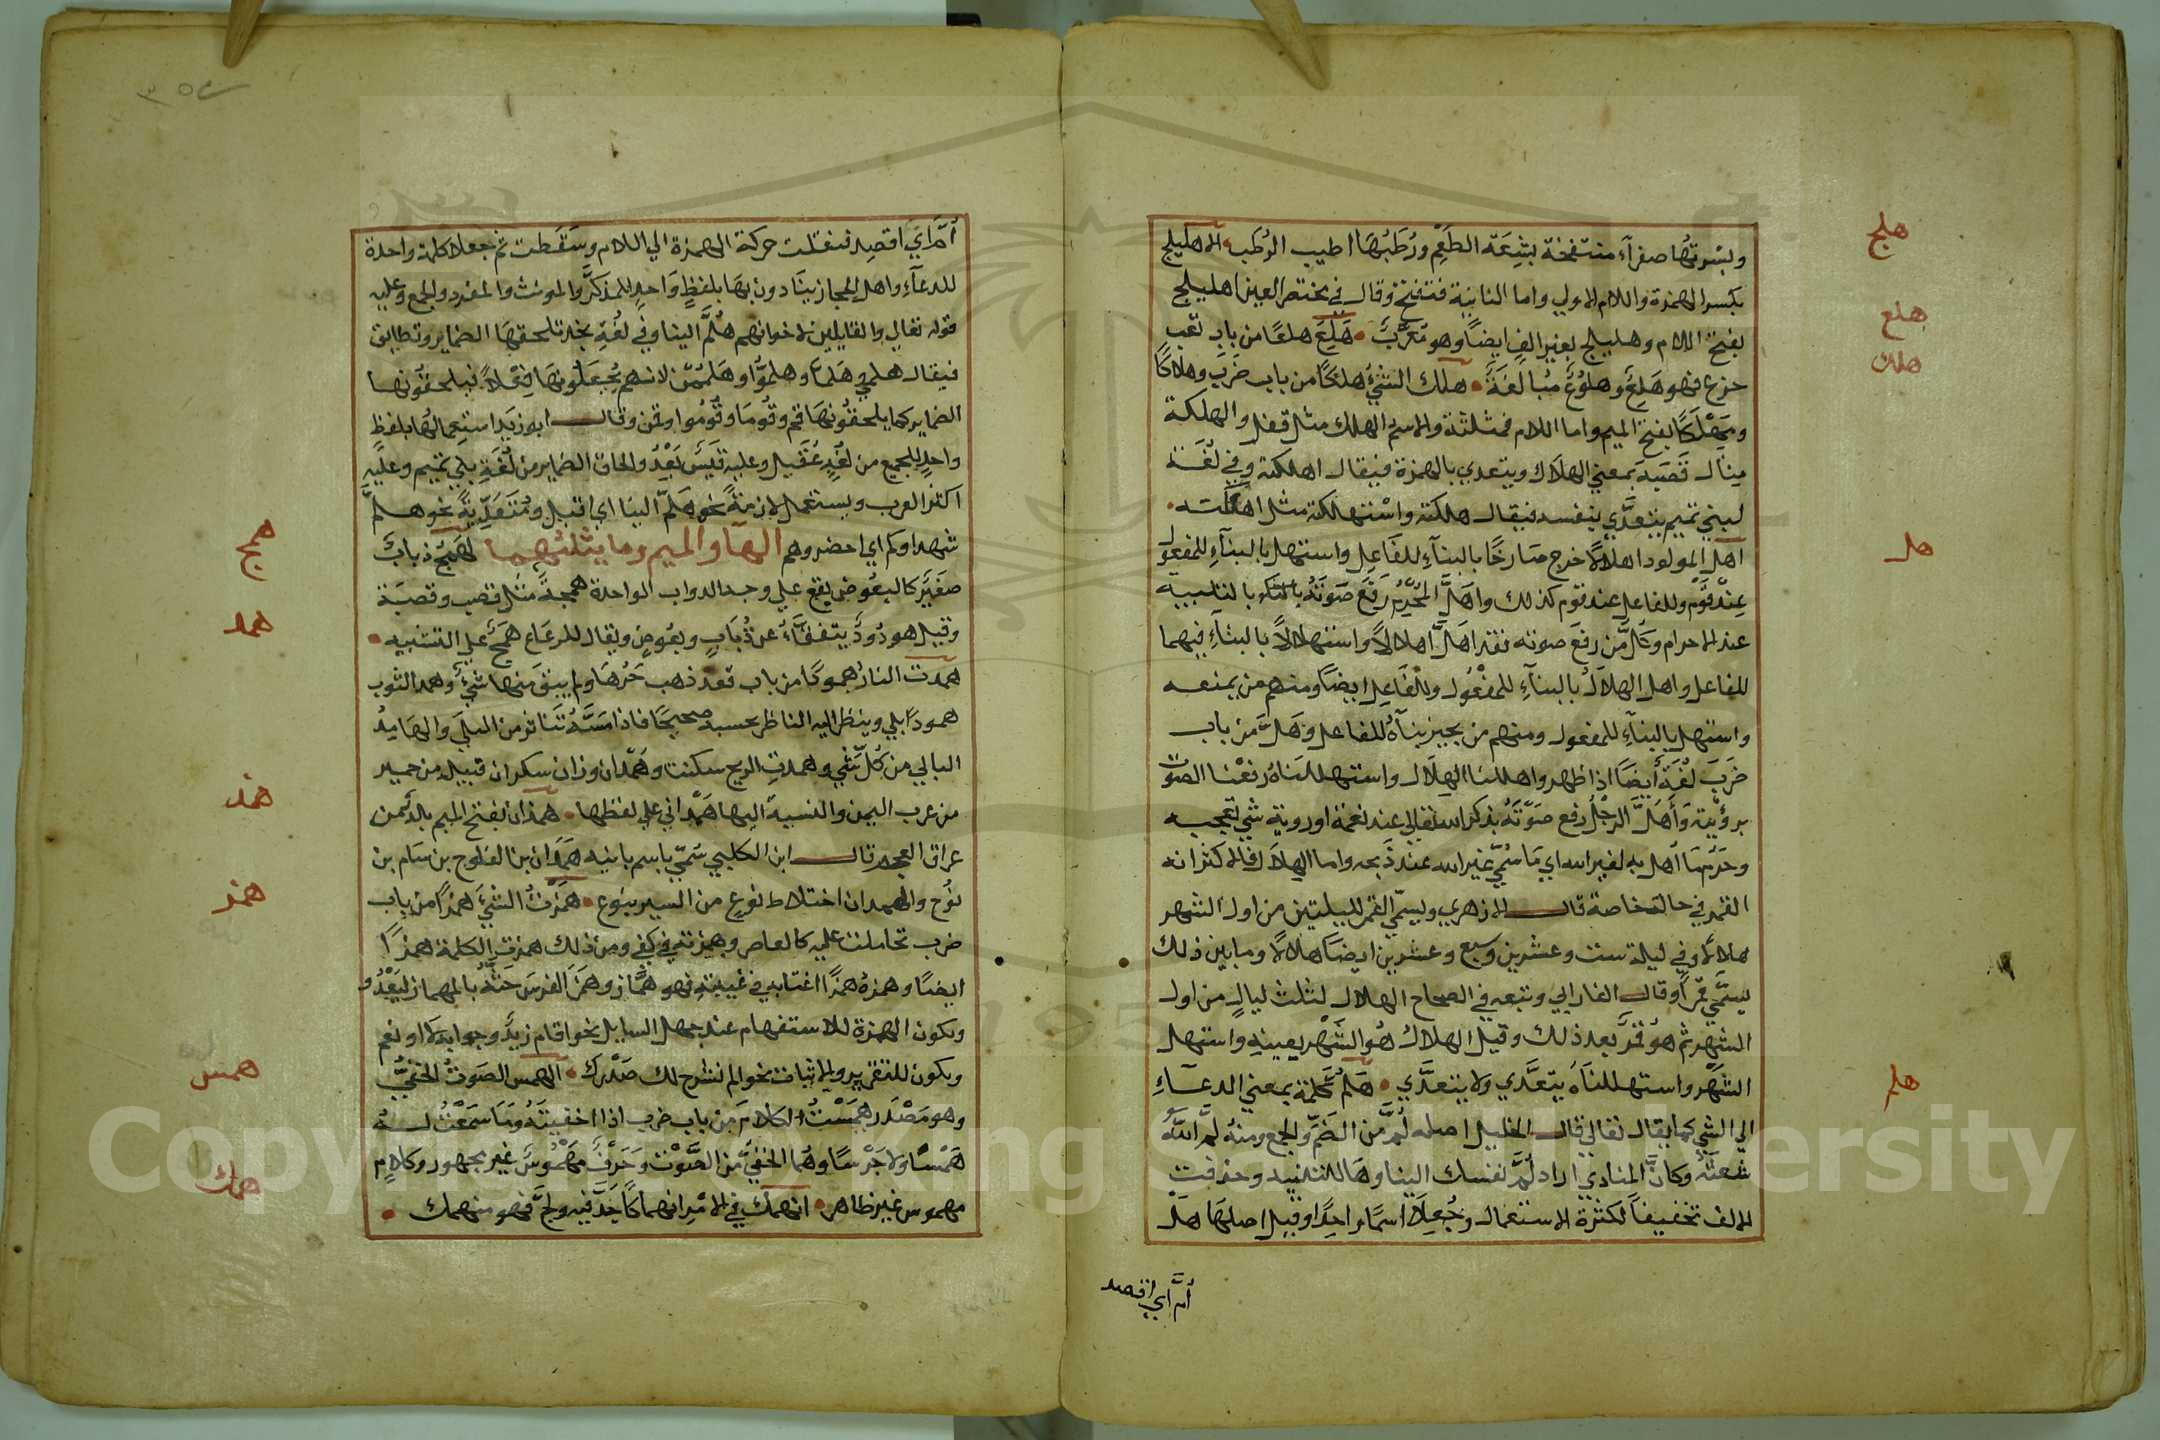 وبسرتها صفرآء منتفخة بشعة الطعم ورطبها اطيب الرطب • الاهليلج
بكسر الهمزة واللام الاولي واما الثانية فتفتح وقال في مختصر العين اهليلج
بفتح اللام وهليلج بغير الف ايضا وهو معرب • هلع هلعا من باب تعب
جزع فهو هلع وهلوع مبالغة • هلك الشئ هلكا من باب ضرب وهلاكا
ومهلكا بفتح الميم واما اللام فمثلثة والاسم الهلك مثل قفل والهلكة
مثال قصبة بمعني الهلاك ويتعدي بالهمزة فيقال اهلكته وفي لغة
لبني تميم يتعدي بنفسه فيقال هلكته واستهلكته مثل اهلكته •
اهل المولود اهلالا خرج صارخا بالبنآء للفاعل واستهل بالبنآء للمفعول
عند قوم وللفاعل عند قوم كذلك واهل المحرم رفع صوته بالتلبية
عند الاحرام وكل من رفع صوته فقد اهل اهلالا واستهل استهلالا بالبنآء فيهما
للفاعل واهل الهلال بالبنآء للمفعول وللفاعل ايضا ومنهم من يمنعه
واستهل بالبنآء للمفعول ومنهم من يجيز بنآه للفاعل وهل من باب
ضرب لغة أيضا اذا ظهر واهللنا الهلال واستهللناه رفعنا الصوت
برؤيته وأهل الرجل رفع صوته بذكر الله تعالي عند نعمة او روية شي يعجبه
وحرم ما اهل به لغير الله اي ما سمي غير الله عند ذبحه واما الهلال فالاكثر انه
القمر في حالة خاصة قال الازهري ويسمي القمر لليلتين من اول الشهر
هلالا وفي ليلة ست وعشرين وسبع وعشرين ايضا هلالا وما بين ذلك
يسمي قمرا وقال الفارابي وتبعه في الصحاح الهلال لثلث ليال من اول
الشهر ثم هو قمر بعد ذلك وقيل الهلال هو الشهر بعينه واستهل
الشهر واستهللناه يتعدي ولا يتعدي • هلم كلمة بمعني الدعآء
الي الشي كما يقال تعالي قال الخليل اصله لم من الضم والجمع ومنه لم الله
شعثه وكان المنادي اراد لم نفسك الينا وها للتنبيه وحذفت
الالف تخفيفا لكثرة الاستعمال وجعلا اسما واحدا وقيل اصلها هل
أم اي اقصد
هلج
هلع
هلك
هل
هلم
أم اي اقصد فنقلت حركة الهمزة الي اللام وسقطت ثم جعلا كلمة واحدة
للدعآء واهل الحجاز ينادون بها بلفظ واحد للمذكر والمونث والمفرد والجمع وعليه
قوله تعالي والقايلين لاخوانهم هلم الينا وفي لغة نجد تلحقها الضماير وتطابق
فيقال هلمي وهلما وهلموا وهلممن لانهم يجعلونها فعلا فيلحقونها
الضماير كما يلحقونها قم وقوما وقوموا وقمن وقال ابو زيد استعمالها بلفظ
واحد للجميع من لغة عقيل وعليه قيس بعد والحاق الضماير من لغة بني تميم وعليه
اكثر العرب ويستعمل لازمة نحو هلم الينا اي اقبل ومتعدية نحو هلم
شهداوكم اي احضروهم الهآ والميم وما يثلثهما الهمج ذباب
صغير كالبعوض يقع علي وجه الدواب الواحدة همجة مثل قصب وقصبة
وقيل هو دود يتفقأ عن ذباب وبعوض ويقال للرعاع همج علي التشبيه •
همدت النار همودا من باب قعد ذهب حرها ولم يبق منها شئ وهمد الثوب
همودا بلي وينظر اليه الناظر يحسبه صحيحا فاذا مسه تناثر من البلي والهامد
البالي من كل شي وهمدت الريح سكنت وهمدان وزان سكران قبيلة من حمير
من عرب اليمن والنسبة اليها همداني علي لفظها • همذان بفتح الميم بلد من
عراق العجم قال ابن الكلبي سمي باسم بانيه همذان بن الفلوج بن سام بن
نوح والهمذان اختلاط نوع من السير بنوع • همزت الشئ همزا من باب
ضرب تحاملت عليه كالعاصر وهمزته في كفي ومن ذلك همزت الكلمة همزا
ايضا وهمزه همزا اغتابه في غيبته فهو هماز وهمز الفرس حثه بالمهماز ليعدو
وتكون الهمزة للاستفهام عند جهل السايل نحو اقام زيد وجوابه لا او نعم
وتكون للتقرير والاثبات نحو الم نشرح لك صدرك • الهمس الصوت الخفي
وهو مصدر همست الكلام من باب ضرب اذا اخفيته وما سمعت له
همسا ولا جرسا وهما الخفي من الصوت وحرف مهموس غير مجهور وكلام
مهموس غير ظاهر • انهمك في الامر انهماكا جد فيه ولج فهو منهمك •
همج
همد
همذ
همز
همس
همك
Copyright © King Saud University